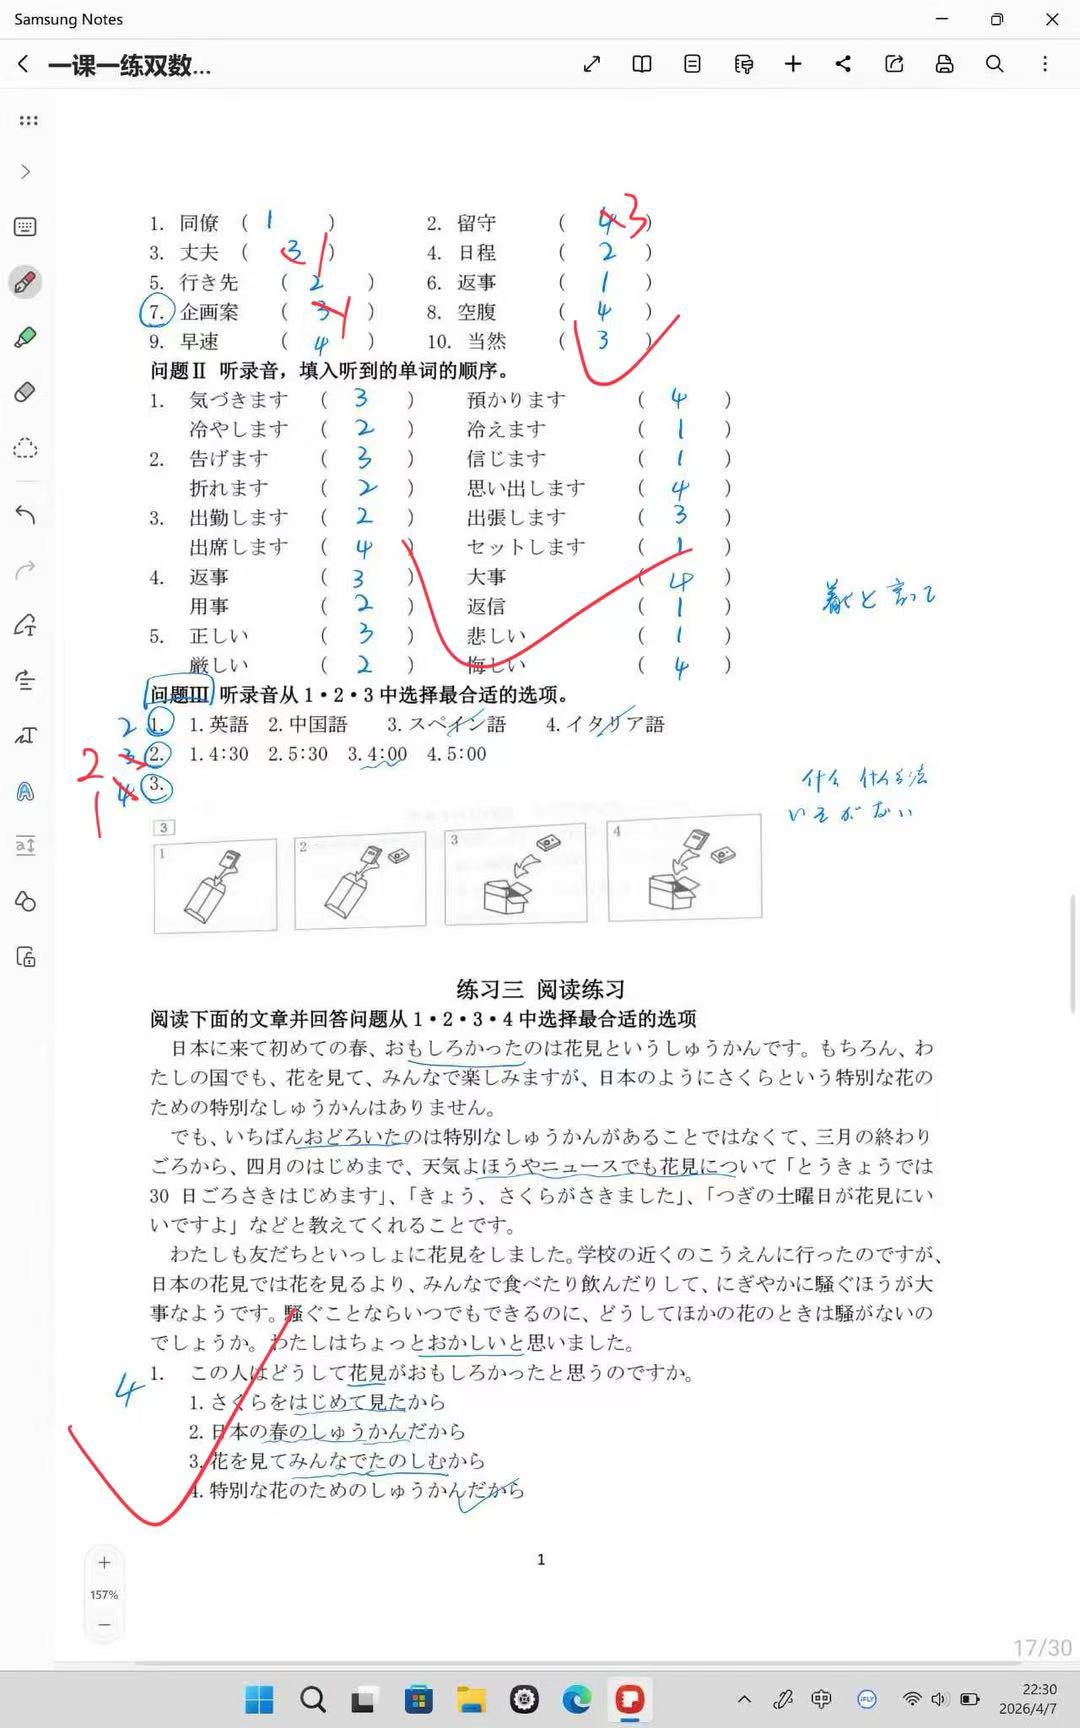 Samsung Notes
一课一练双数...
1. 同僚 ( 1 ) 2. 留守 ( 4 3 )
3. 丈夫 ( 3 1 ) 4. 日程 ( 2 )
5. 行き先 ( 2 ) 6. 返事 ( 1 )
7. 企画案 ( 3 1 ) 8. 空腹 ( 4 )
9. 早速 ( 4 ) 10. 当然 ( 3 )
问题Ⅱ 听录音，填入听到的单词的顺序。
1. 気づきます ( 3 ) 預かります ( 4 )
冷やします ( 2 ) 冷えます ( 1 )
2. 告げます ( 3 ) 信じます ( 1 )
折れます ( 2 ) 思い出します ( 4 )
3. 出勤します ( 2 ) 出張します ( 3 )
出席します ( 4 ) セットします ( 1 )
4. 返事 ( 3 ) 大事 ( 4 )
用事 ( 2 ) 返信 ( 1 )
と言って
5. 正しい ( 3 ) 悲しい ( 1 )
厳しい ( 2 ) 悔しい ( 4 )
问题Ⅲ 听录音从 1・2・3 中选择最合适的选项。
2 1. 1.英語 2.中国語 3.スペイン語 4.イタリア語
2 3 2. 1.4:30 2.5:30 3.4:00 4.5:00
1 4 3.
什么 什么方法
3
1
2
3
4
练习三 阅读练习
阅读下面的文章并回答问题从 1・2・3・4 中选择最合适的选项
日本に来て初めての春、おもしろかったのは花見というしゅうかんです。もちろん、わ
たしの国でも、花を見て、みんなで楽しみますが、日本のようにさくらという特別な花の
ための特別なしゅうかんはありません。
でも、いちばんおどろいたのは特別なしゅうかんがあることではなくて、三月の終わり
ごろから、四月のはじめまで、天気よほうやニュースでも花見について「とうきょうでは
30 日ごろさきはじめます」、「きょう、さくらがさきました」、「つぎの土曜日が花見にい
いですよ」などと教えてくれることです。
わたしも友だちといっしょに花見をしました。学校の近くのこうえんに行ったのですが、
日本の花見では花を見るより、みんなで食べたり飲んだりして、にぎやかに騒ぐほうが大
事なようです。騒ぐことならいつでもできるのに、どうしてほかの花のときは騒がないの
でしょうか。わたしはちょっとおかしいと思いました。
4 1. この人はどうして花見がおもしろかったと思うのですか。
1.さくらをはじめて見たから
2.日本の春のしゅうかんだから
3.花を見てみんなでたのしむから
4.特別な花のためのしゅうかんだから
1
157%
17/30
中
22:30
2026/4/7